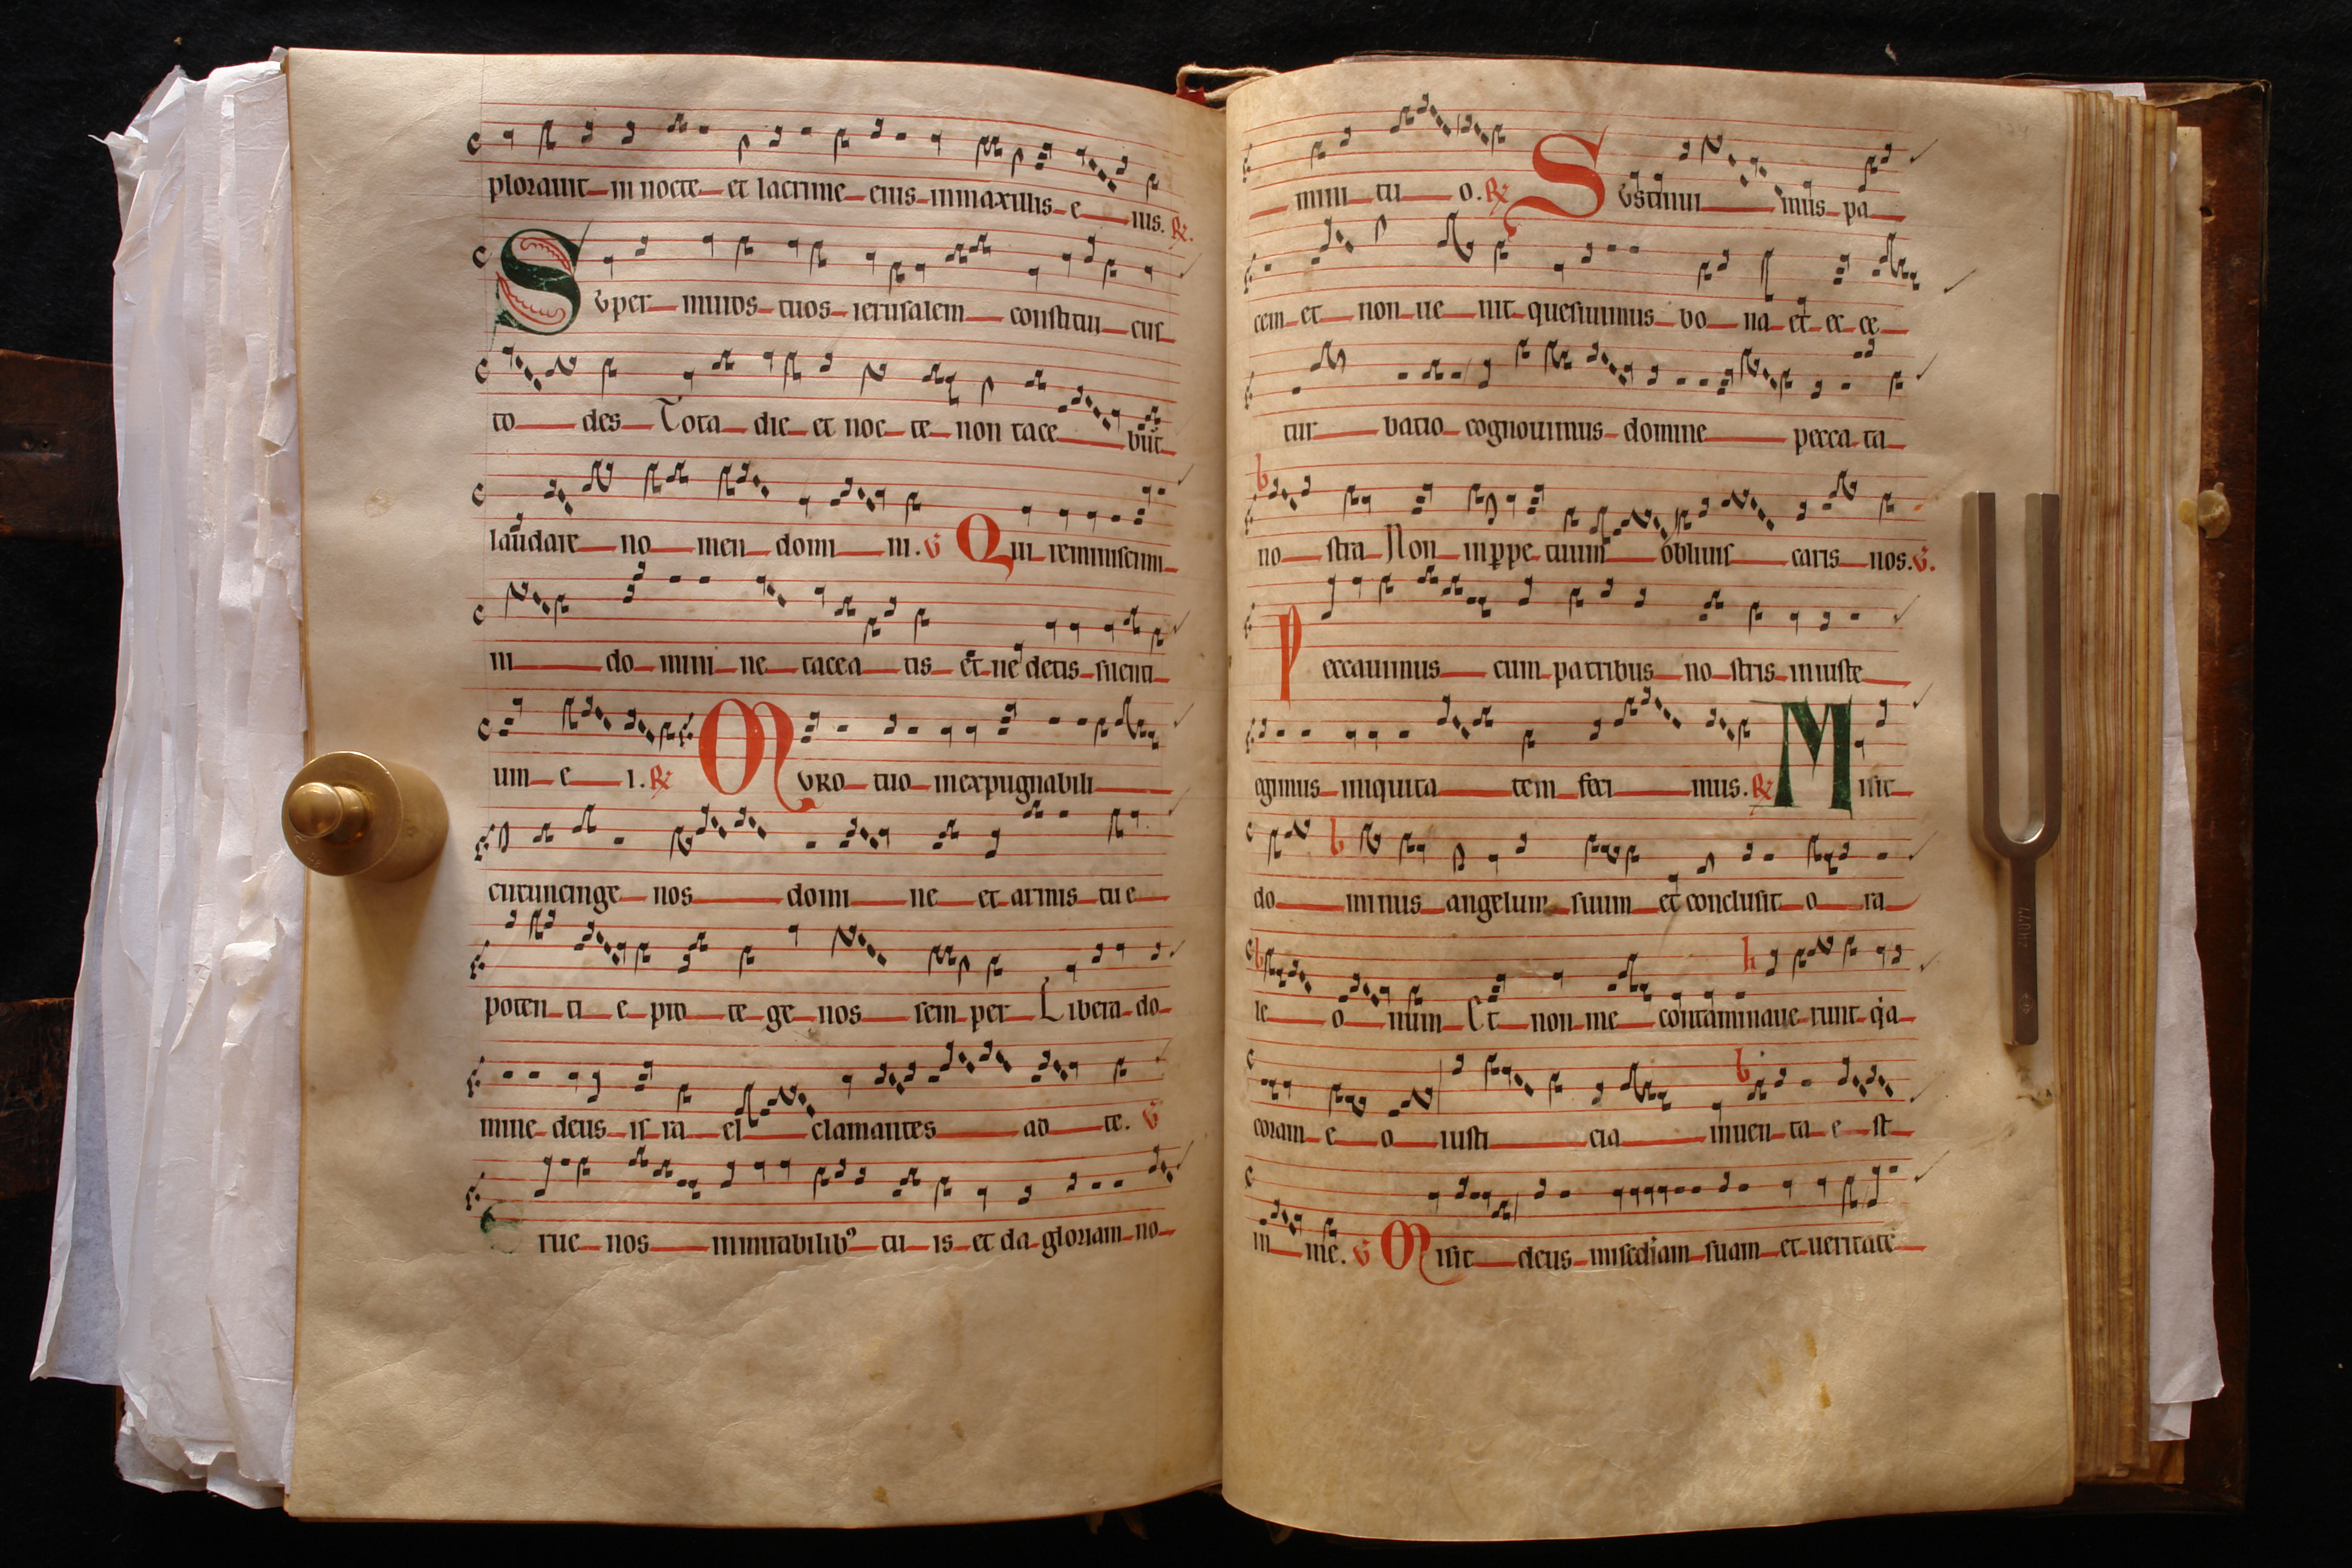 plorauit in nocte et lacrime eius in maxillis e ius. R.
Super muros tuos ierusalem constitui cus
to des Tota die et noc te non tace būt
laudare no men domi ni. V Qui reminiscimi
ni do mini ne tacea tis et ne detis silenti
um e i. R Muro tuo inexpugnabili
circuncinge nos domi ne et armis tu e
poten ti e pro te ge nos sem per Libera do
mine deus is ra el clamantes ad te. V
Erue nos in mirabilibꝰ tu is et da gloriam no
mini tu o. R Sustinui mus pa
cem et non ue nit quesiuimus bo na et ec ce
tur batio cognouimus domine pecca ta
no stra Non in ꝑpe tuum obliuis caris nos. V.
Peccauimus cum patribus no stris iniuste
egimus iniquita tem feci mus. R Misit
do minus angelum suum et conclusit o ra
le o num Et non me contaminaue runt q̇a
coram e o iusti cia inuen ta e st
in me. V Misit deus misc̄diam suam et ueritatē